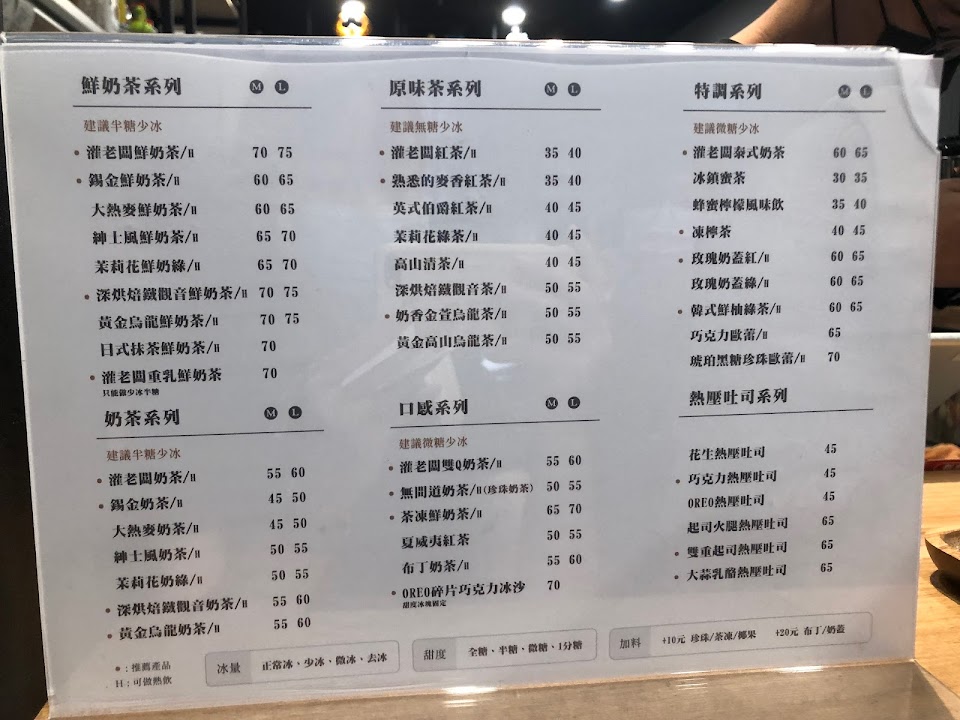 鮮奶茶系列 M L
建議半糖少冰
• 灌老闆鮮奶茶/H 70 75
• 錫金鮮奶茶/H 60 65
大熱麥鮮奶茶/H 60 65
紳士風鮮奶茶/H 65 70
茉莉花鮮奶綠/H 65 70
• 深烘焙鐵觀音鮮奶茶/H 70 75
黃金烏龍鮮奶茶/H 70 75
日式抹茶鮮奶茶/H 70
• 灌老闆重乳鮮奶茶 70
只能做少冰半糖
奶茶系列 M L
建議半糖少冰
• 灌老闆奶茶/H 55 60
• 錫金奶茶/H 45 50
大熱麥奶茶/H 45 50
紳士風奶茶/H 50 55
茉莉花奶綠/H 50 55
• 深烘焙鐵觀音奶茶/H 55 60
• 黃金烏龍奶茶/H 55 60
原味茶系列 M L
建議無糖少冰
• 灌老闆紅茶/H 35 40
• 熟悉的麥香紅茶/H 35 40
英式伯爵紅茶/H 40 45
茉莉花綠茶/H 40 45
高山清茶/H 40 45
深烘焙鐵觀音茶/H 50 55
• 奶香金萱烏龍茶/H 50 55
黃金高山烏龍茶/H 50 55
口感系列 M L
建議微糖少冰
• 灌老闆雙Q奶茶/H 55 60
• 無間道奶茶/H(珍珠奶茶) 50 55
• 茶凍鮮奶茶/H 65 70
夏威夷紅茶 50 55
布丁奶茶/H 55 60
• OREO碎片巧克力冰沙 70
甜度冰塊固定
特調系列 M L
建議微糖少冰
• 灌老闆泰式奶茶 60 65
冰鎮蜜茶 30 35
蜂蜜檸檬風味飲 35 40
• 凍檸茶 40 45
• 玫瑰奶蓋紅/H 60 65
玫瑰奶蓋綠/H 60 65
• 韓式鮮柚綠茶/H 60 65
巧克力歐蕾/H 65
琥珀黑糖珍珠歐蕾/H 70
熱壓吐司系列
花生熱壓吐司 45
• 巧克力熱壓吐司 45
OREO熱壓吐司 45
起司火腿熱壓吐司 65
• 雙重起司熱壓吐司 65
• 大蒜乳酪熱壓吐司 65
•：推薦產品
H：可做熱飲
冰量 正常冰、少冰、微冰、去冰
甜度 全糖、半糖、微糖、1分糖
加料 +10元 珍珠/茶凍/椰果 +20元 布丁/奶蓋